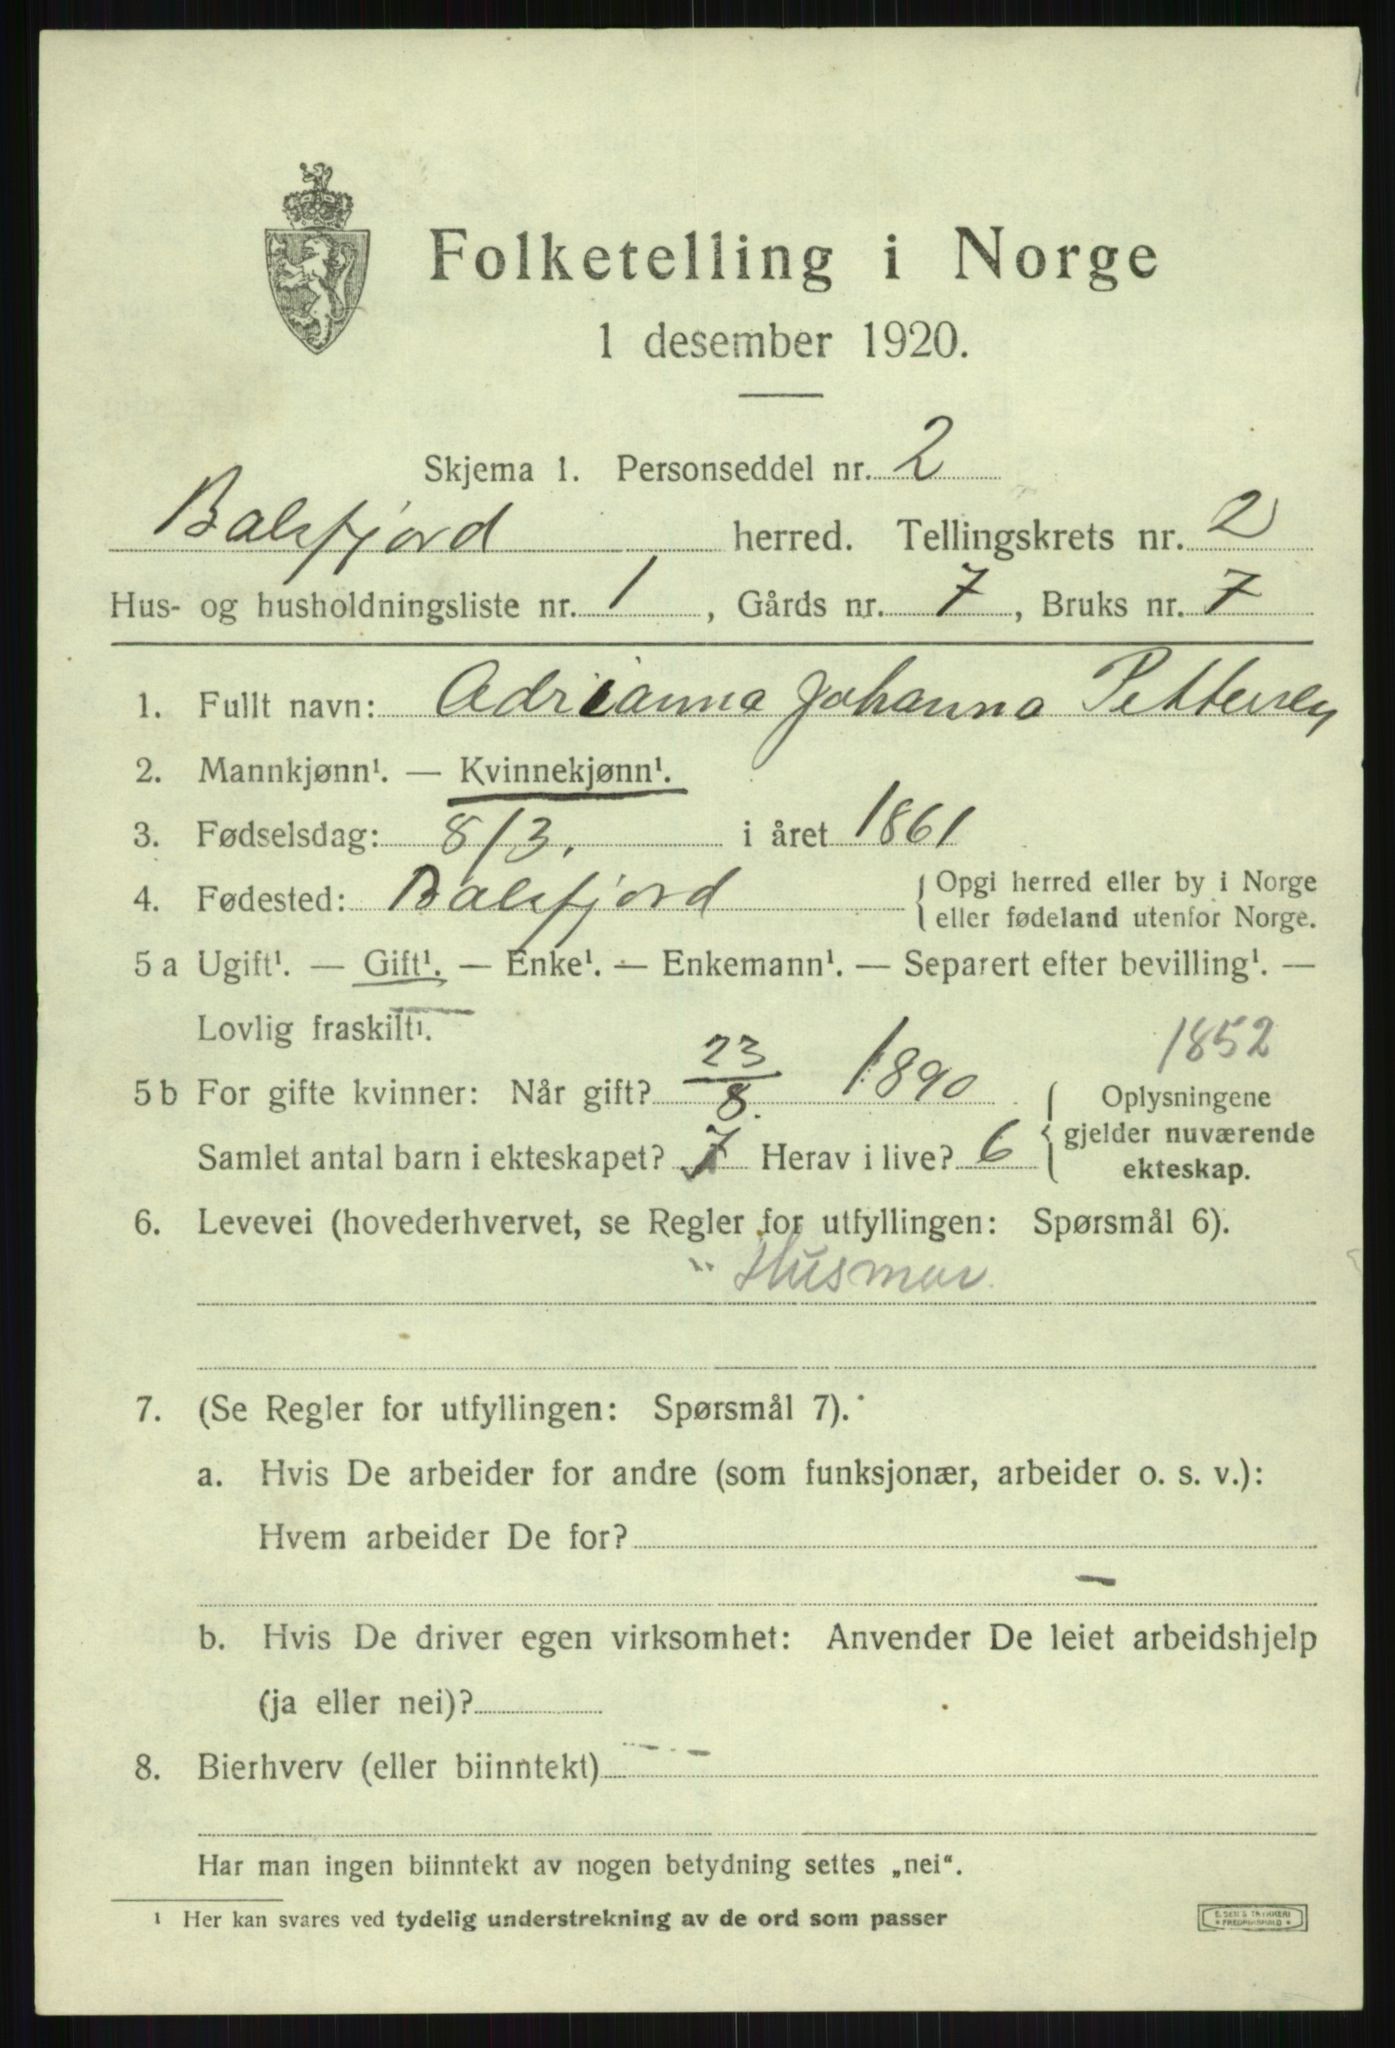 Folketelling i Norge
1 desember 1920.
Skjema 1. Personseddel nr. 2
Balsfjord herred. Tellingskrets nr. 2
Hus- og husholdningsliste nr. 1, Gårds nr. 7, Bruks nr. 7
1. Fullt navn: Adrianna Johanna Pettersen
2. Mannkjønn¹. — Kvinnekjønn¹.
3. Fødselsdag: 8/3. i året 1861
4. Fødested: Balsfjord { Opgi herred eller by i Norge
eller fødeland utenfor Norge.
5 a Ugift¹. — Gift¹. — Enke¹. — Enkemann¹. — Separert efter bevilling¹. —
Lovlig fraskilt¹.
1852
5 b For gifte kvinner: Når gift? 23/8. 1890 { Oplysningene
gjelder nuværende
Samlet antal barn i ekteskapet? 7 Herav i live? 6
ekteskap.
6. Levevei (hovederhvervet, se Regler for utfyllingen: Spørsmål 6).
" Husmor
7. (Se Regler for utfyllingen: Spørsmål 7).
a. Hvis De arbeider for andre (som funksjonær, arbeider o. s. v.):
Hvem arbeider De for?
—
b. Hvis De driver egen virksomhet: Anvender De leiet arbeidshjelp
(ja eller nei)?
8. Bierhverv (eller biinntekt)
Har man ingen biinntekt av nogen betydning settes „nei“.
¹ Her kan svares ved tydelig understrekning av de ord som passer